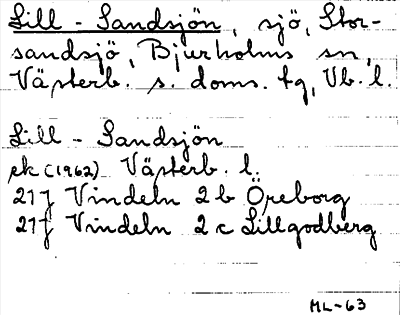 Lill - Sandsjön, sjö, Stor-
sandsjö, Bjurholms sn,
Västerb. s. doms. tg, Vb. l.
Lill - Sandsjön
ek (1962) Västerb. l.
21J Vindeln 2b Öreborg
21J Vindeln 2c Lillgodberg
ML-63